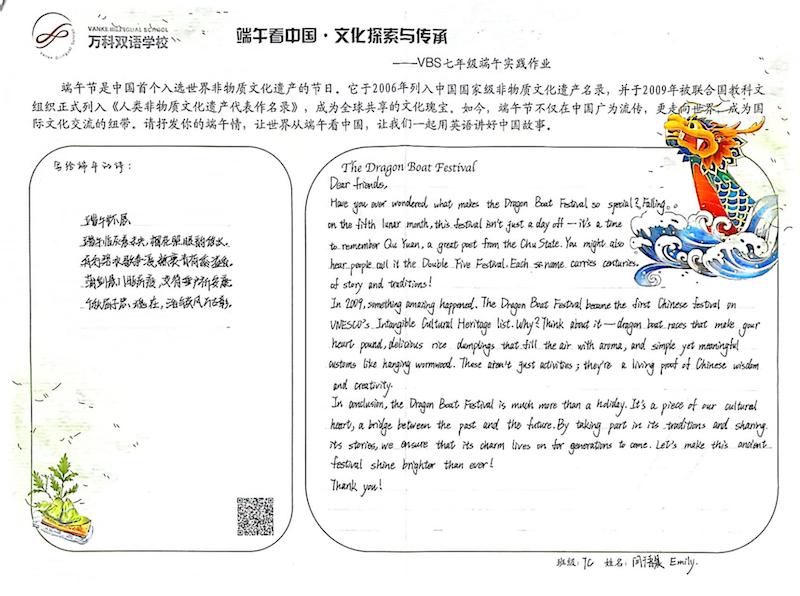 VANKE BILINGUAL SCHOOL
万科双语学校
端午看中国·文化探索与传承
——VBS七年级端午实践作业
端午节是中国首个入选世界非物质文化遗产的节日。它于2006年列入中国国家级非物质文化遗产名录，并于2009年被联合国教科文
组织正式列入《人类非物质文化遗产代表作名录》，成为全球共享的文化瑰宝。如今，端午节不仅在中国广为流传，更走向世界，成为国
际文化交流的纽带。请抒发你的端午情，让世界从端午看中国，让我们一起用英语讲好中国故事。
写给端午的诗：
端午怀屈
The Dragon Boat Festival
Dear friends,
Have you ever wondered what makes the Dragon Boat Festival so special? Falling
on the fifth lunar month, this festival isn't just a day off — it's a time
to remember Qu Yuan, a great poet from the Chu State. You might also
hear people call it the Double Five Festival. Each name carries centuries
of story and traditions!
In 2009, something amazing happened. The Dragon Boat Festival became the first Chinese festival on
UNESCO's Intangible Cultural Heritage list. Why? Think about it — dragon boat races that make your
heart pound, delicious rice dumplings that fill the air with aroma, and simple yet meaningful
customs like hanging wormwood. These aren't just activities; they're a living proof of Chinese wisdom
and creativity.
In conclusion, the Dragon Boat Festival is much more than a holiday. It's a piece of our cultural
heart, a bridge between the past and the future. By taking part in its traditions and sharing
its stories, we ensure that its charm lives on for generations to come. Let's make this ancient
festival shine brighter than ever!
Thank you!
班级：7C 姓名： Emily.